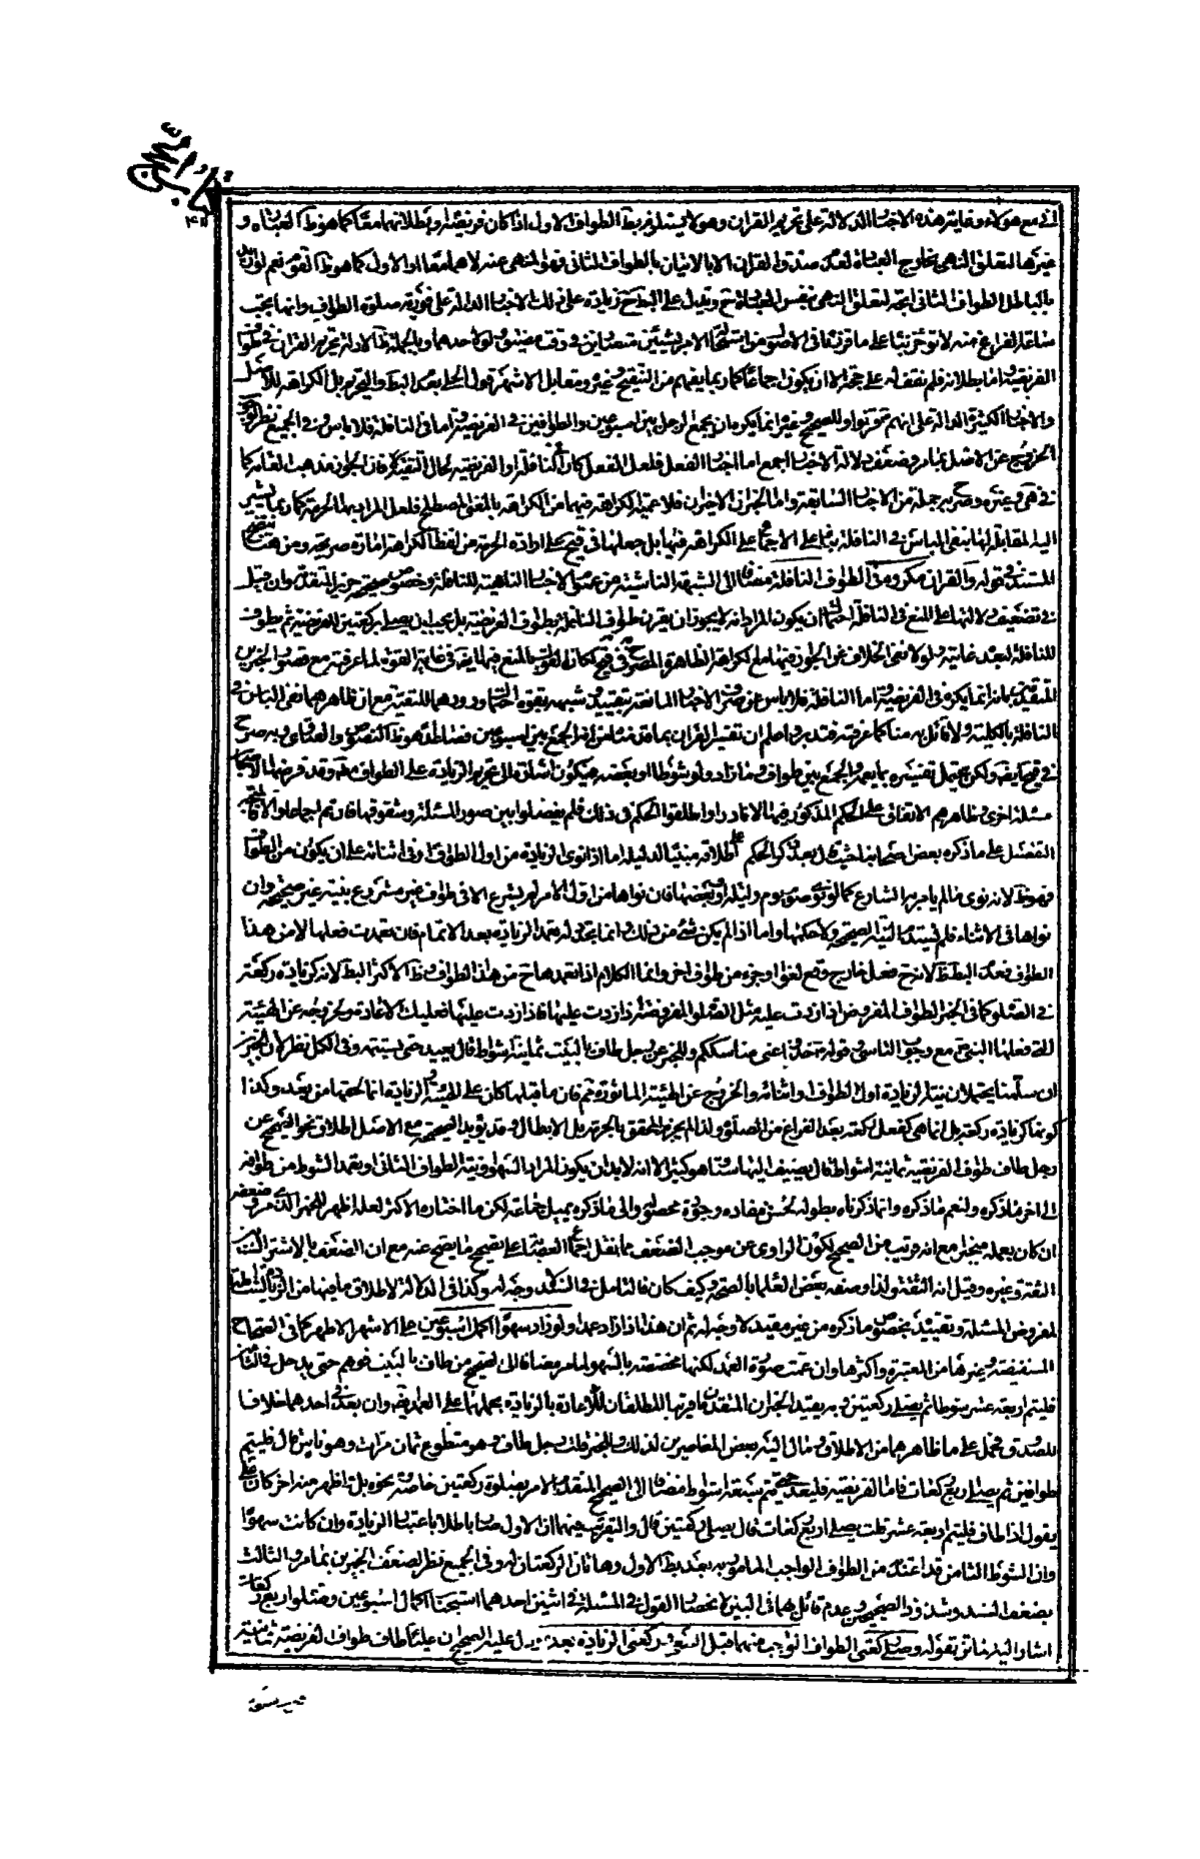 كتاب الحج
الى مع هؤلاء وغاية هذه الاخبار الدلالة على تحريم القران وهو لا يستلزم بطلان الطواف الاول اذا كان فريضة وبطلانهما معا كما هو ظاهر العبارة و
غيرها لتعلق النهى بخارج العبادة لعدم صدق القران الا بالاتيان بالطواف الثانى فهو المنهى عنه لاهما معا او الاول كما هو ظاهر القوم نعم لو اريد
بالباطل الطواف الثانى اتجه لتعلق النهى بنفس العبادة ح ويدل على البطلان ح زيادة على ذلك الاخبار الدالة على فورية صلوة الطواف وانها تجب
ساعة الفراغ منه لا تؤخر بناء على ما قررناه فى الاصول من استحالة الامر بشيئين متضادين فى وقت مضيق ولو لاحدهما وبالجملة ظاهر الادلة تحريم القران فى طواف
الفريضة واما بطلانه فلم نقف له على حجة الا ان يكون اجماعا كما ربما يفهم من التنقيح وغيره ومقابل الاشهر قول الحلى بعدم البطلان والتحريم بل الكراهة للاصل
والاخبار الكثيرة الدالة على انهم قرنوا وللصحيح وغيره انما يكره ان يجمع الرجل بين اسبوعين والطوافين فى الفريضة واما فى النافلة فلا باس وفى الجميع نظر لوجوب
الخروج عن الاصل بما مر وضعف دلالة الاخبار اجمع اما اخبار الفعل فلعل الفعل كان فى النافلة او الفريضة لحال التقية فان الجواز مذهب العامة كما
فى هى وغيره وصرح به جملة من الاخبار السابقة واما الخبران الاخيران فلا عبرة لكراهة فيهما من الكراهة بالمعنى المصطلح فلعل المراد بها الحرمة كما ربما يشير
اليه المقابلة لها بنفى الباس فى النافلة بناء على الاجماع على الكراهة فيها بل جعلها فى قيح على ارادة الحرمة من لفظ الكراهة امارة صريحة ومن هنا يتضح
المستند فى قوله والقران مكروه فى الطواف النافلة مضافا الى الشبهة الناشئة من عموم الاخبار الناهية للنافلة وخصوص صحيحة حريز المتقدمة وان قيل
فى تضعيف دلالتها على المنع فى النافلة احتمال ان يكون المراد انه لا يجوز ان يقرن طواف النافلة بطواف الفريضة بل يجب ان يصلى ركعتين للفريضة ثم يطوف
للنافلة لبعده غايته ولولا نفى الخلاف عن الجواز فيها مع الكراهة الظاهرة المصرح به فى قيح لكان القول بالمنع فيها ايضا فى غاية القوة لما عرفته مع قصور الخبرين
المتقدمين بما مر انما يكره فى الفريضة واما النافلة فلا باس عن صرف الاخبار المانعة وتقييدها شبهة بقوة احتمال ورودهما للتقية مع ان ظاهرهما نفى الباس فى
النافلة بالكلية ولا قائل به منا كما عرفته فتدبر واعلم ان تفسير القران بما قدمناه من انه الجمع بين اسبوعين فصاعدا هو ظاهر النصوص والفتاوى وبه صرح
فى قيح ايضا ولكن يحتمل تفسيره بما يعمه والجمع بين طواف وما زاد ولو شوطا او بعضه فيكون اشارة الى تحريم الزيادة على الطواف مطلقا وقد فرضها الاصحاب
مسئلة اخرى وظاهرهم الاتفاق على الحكم المذكور فيها الا نادرا واطلقوا الحكم فى ذلك فلم يفصلوا بين صور المسئلة وشقوقها فان تم اجماعا والا فالمتجه
التفصيل على ما ذكره بعض اصحابنا حيث قال بعد ذكر الحكم على اطلاقه مبينا لدليله اما اذا نوى الزيادة من اول الطواف او فى اثنائه على ان يكون من الطواف
فهو ظاهر لانه نوى ما لم يامر به الشارع كما لو نوى صوم يوم وليلة او بعضها فان نواها من اول الامر لم يشرع الا فى طواف غير مشروع بنية غير صحيحة وان
نواها فى الاثناء فلم يستدم النية الصحيحة ولا حكمها واما اذا لم يكن شىء من ذلك وانما تجدد له تعمد الزيادة بعد الاتمام فان تعمدت فعلها لا من هذا
الطواف فعدم البطلان ظاهر لانه ح فعل خارج وقع لغوا او جزء من طواف اخر وانما الكلام اذا تعمدها ح من هذا الطواف وظاهر الاكثر البطلان لانه كزيادة ركعة
فى الصلوة كما فى الخبر الطواف المفروض اذا زدت عليه مثل الصلوة المفروضة اذا زدت عليها فاذا زدت عليها فعليك الاعادة ولخروجه عن الهيئة
التى فعلها النبى ص مع وجوب التاسى وقوله ص خذوا عنى مناسككم وللخبر عن رجل طاف بالبيت ثمانية اشواط قال يعيد حتى يستتمه وفى الكل نظر لان الخبرين
ان سلمنا يحتملان نية الزيادة اول الطواف او اثنائه والخروج عن الهيئة الماثورة ثم فان ما قبلها كان على الهيئة والزيادة انما لحقتها من بعد وكذا
كونها كزيادة ركعة بل انما هى كفعل ركعة بعد الفراغ من الصلوة ولذا لم يجزم المحقق بالحرمة بل الابطال وقد يؤيد الصحة مع الاصل اطلاق نحو الصحيح عن
رجل طاف طواف الفريضة ثمانية اشواط قال يضيف اليها ستا وهو كثير الا انه لا بد ان يكون المراد السهو او نية الطواف الثانى او تعمد الشوط من طوافه
الى اخر ما ذكره ولنعم ما ذكره وانما ذكرناه بطوله لحسن مفاده وجودة محصوله والى ما ذكره يميل جماعة لكن ما اختاره الاكثر لعله اظهر للخبر الذى مر وضعفه
ان كان بعمله منجبر مع انه قريب من الصحيح لكون الراوى عن موجب الضعف مما نقل اجماع العصابة على تصحيح ما يصح عنه مع ان الضعف بالاشتراك بين
الثقة وغيره وقيل انه الثقة ولذا وصفه بعض العلماء بالصحة وكيف كان فالتامل فى السند لا وجه له وكذا فى الدلالة لاطلاق ما فيها من الزيادة الشاملة
لمفروض المسئلة وتقييده بخصوص ما ذكره من غير مقيد لا وجه له ثم ان هذا اذا زاد عمدا ولو زاد سهوا اكمل اسبوعين على الاشهر الاظهر كما فى الصحاح
المستفيضة وغيرها من المعتبرة واكثرها وان عمت صورة العمد لكنها مختصة بالسهو لما مر مضافا الى الصحيح من طاف بالبيت فوهم حتى يدخل فى الثامن
فليتم اربعة عشر شوطا ثم يصلى ركعتين وبه يقيد الخبران المتقدمان قريبا المطلقان للاعادة بالزيادة بحملهما على العمد ايضا وان بعد فى احدهما خلافا
للصدوق فحمل على ما ظاهرهما من الاطلاق ومال اليه بعض المعاصرين لذلك وللخبر قلت رجل طاف وهو متطوع ثمان مرات وهو ناس قال فليتم
طوافين ثم يصلى اربع ركعات فاما الفريضة فليعد حتى يتم سبعة اشواط مضافا الى الصحيح المتقدم بالامر بصلوة ركعتين خاصة ونحوه بل اظهر منه اخر كان على ع
يقول اذا طاف فليتم اربعة عشر قلت يصلى اربع ركعات قال يصلى ركعتين قال والتقريب فيهما ان الاول صار باطلا باعتبار الزيادة وان كانت سهوا
وان الشوط الثامن قد اعتد به من الطواف الواجب المامور به بعد بطلان الاول وهاتان الركعتان له وفى الجميع نظر لضعف الخبرين بما مر والثالث
بضعف السند وشذوذ الصحيحين وعدم قائل بهما فى البين لانحصار القول فى المسئلة فى اثنين احدهما استحباب اكمال اسبوعين وصلوة اربع ركعات
اشار اليه الماتن بقوله وصلى ركعتى الطواف الواجب منهما قبل السعى وركعتى الزيادة بعده ويدل عليه الصحيح ان عليا ع طاف طواف الفريضة ثمانية